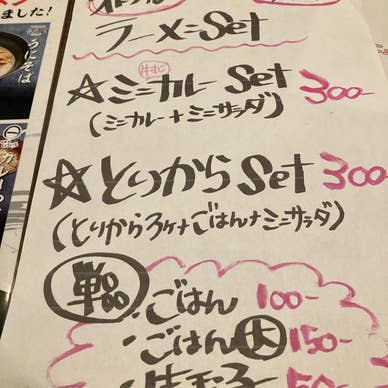 ラーメンSet
牛すじ
☆ミニカレーSet 300-
(ミニカレー+ミニサラダ)
☆とりからSet 300-
(とりから3ケ+ごはん+ミニサラダ)
単品
・ごはん 100-
・ごはん大 150-
・生玉子 50-
ました!
うにそば